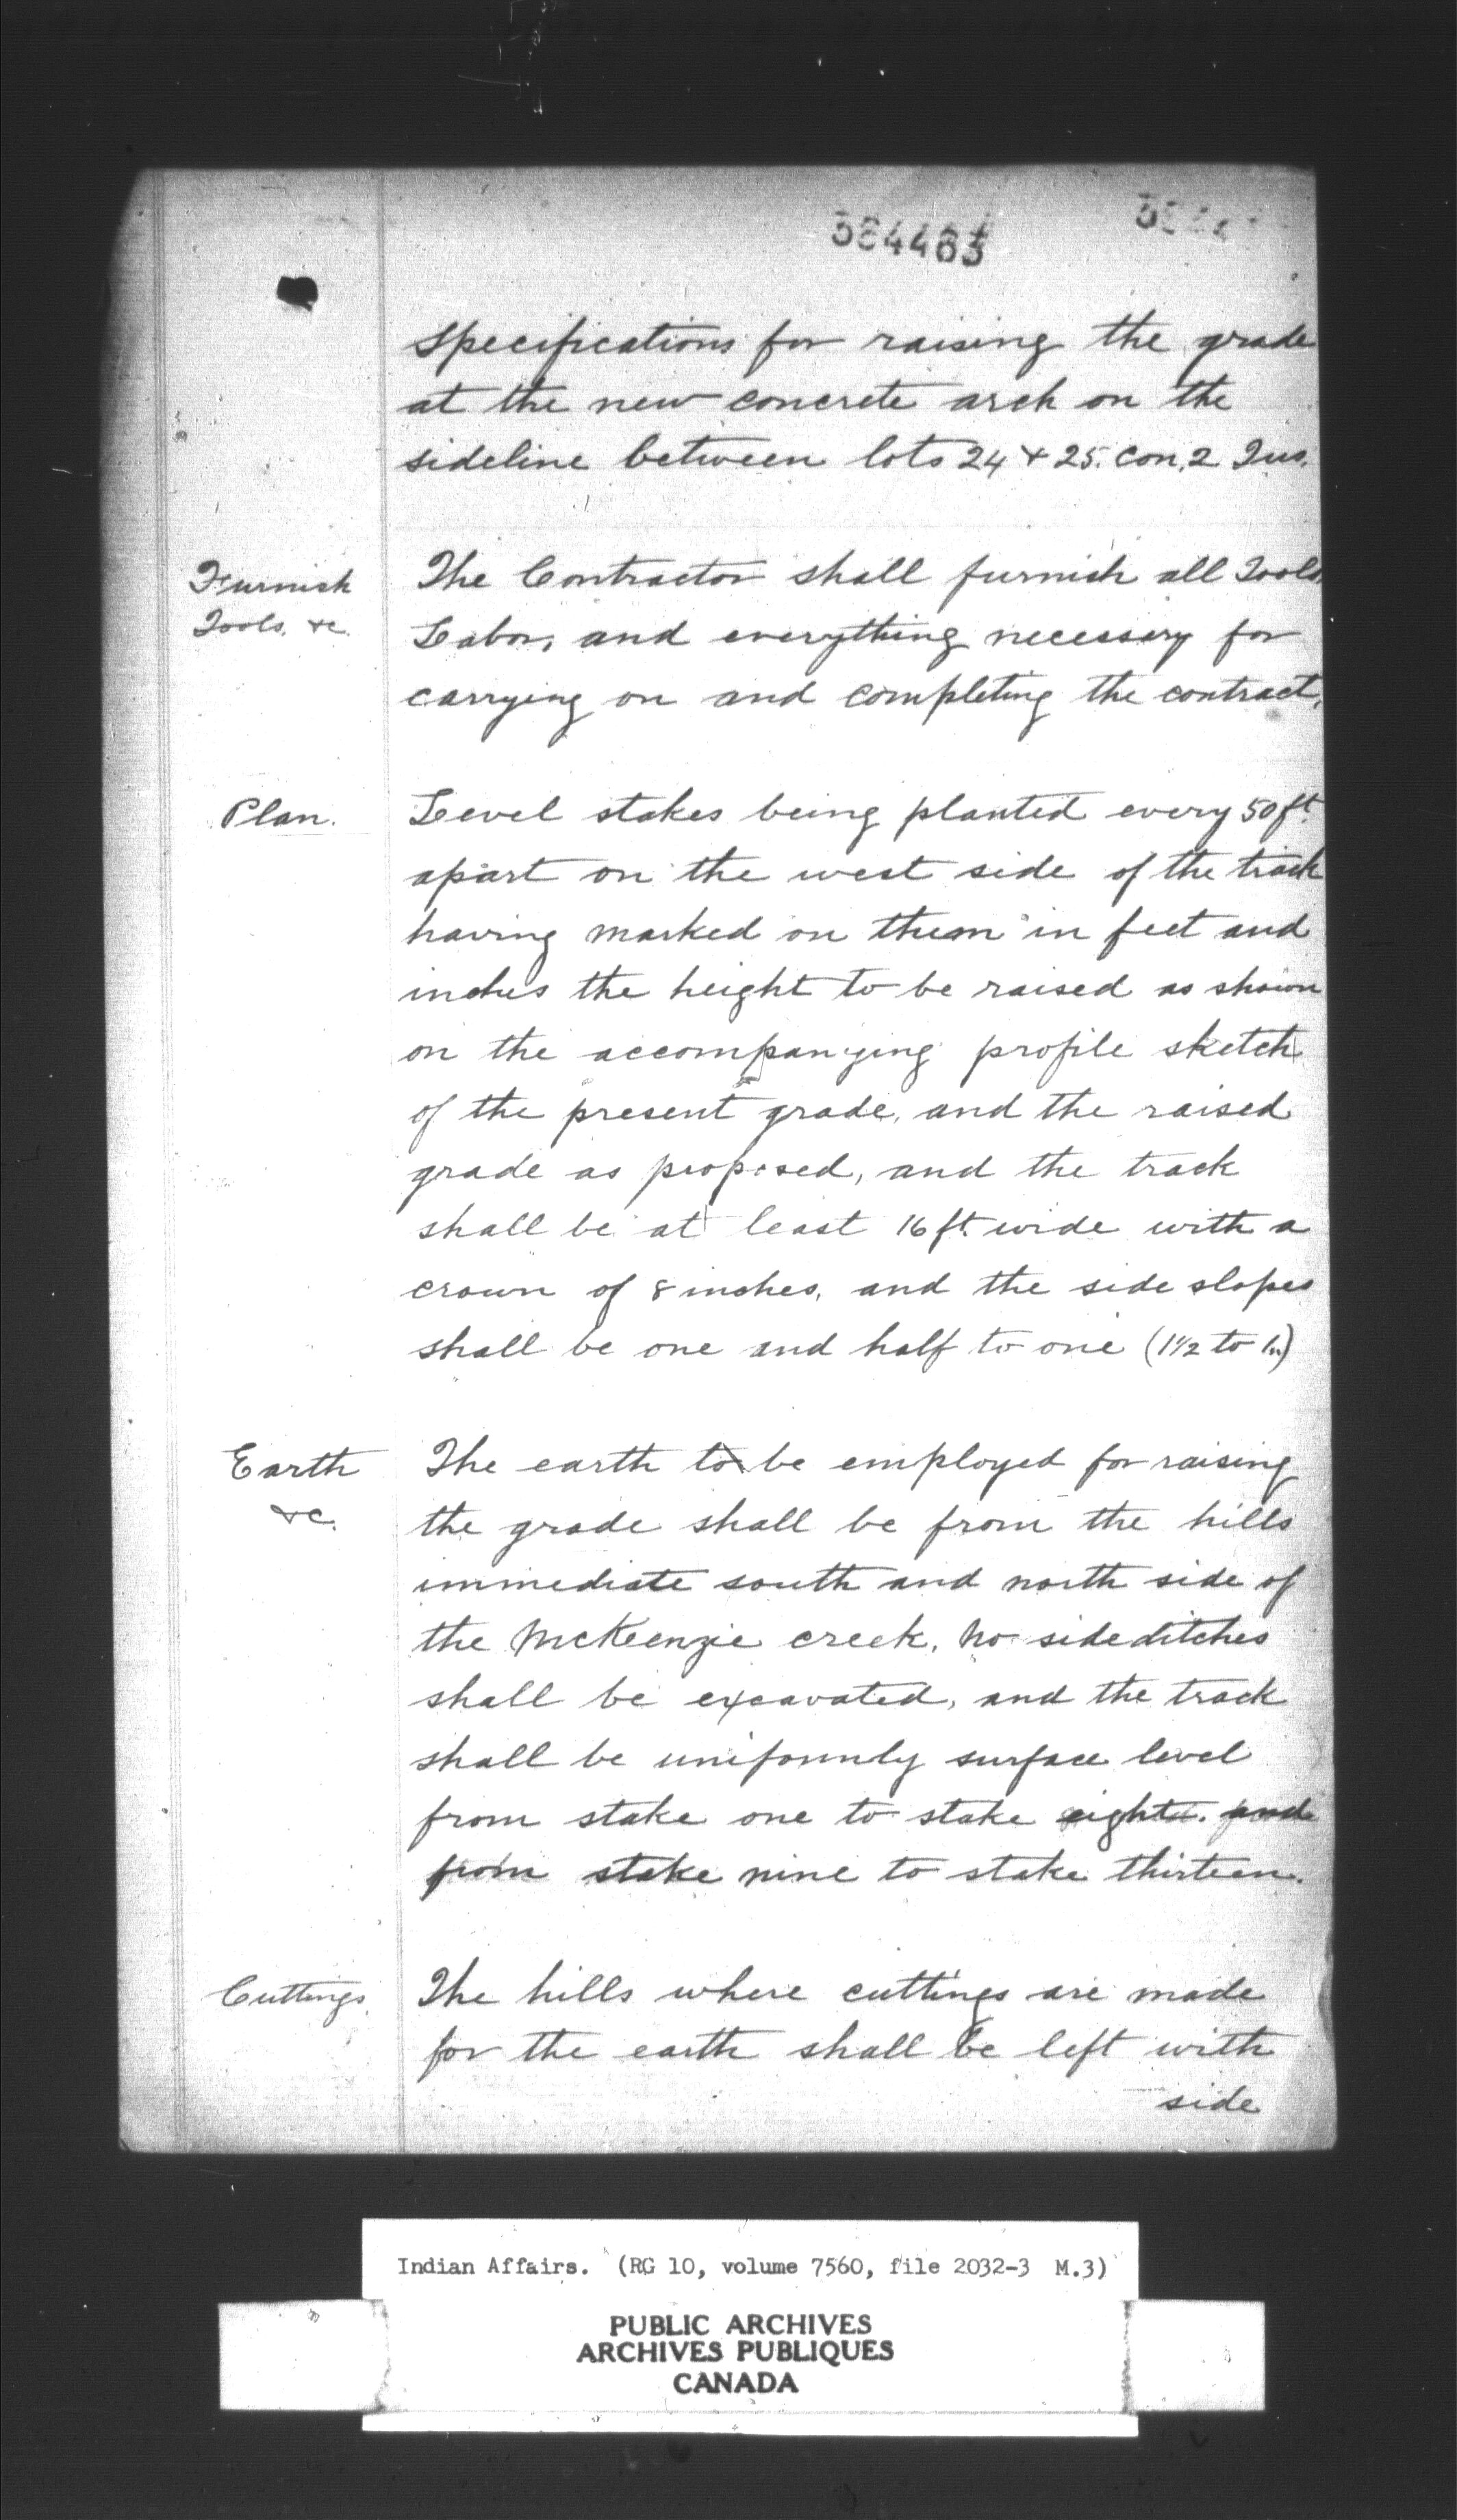 364483
specifications for raising the grade
at the new concrete arch on the
sideline between lots 24 & 25. Con. 2 Tus.
Furnish
Tools, &c.
The Contractor shall furnish all Tools,
Labor, and everything necessary for
carrying on and completing the contract.
Plan.
Level stakes being planted every 50 ft.
apart on the west side of the track
having marked on them in feet and
inches the height to be raised as shown
on the accompanying profile sketch
of the present grade, and the raised
grade as proposed, and the track
shall be at least 16 ft. wide with a
crown of 8 inches, and the side slopes
shall be one and half to one (1½ to 1.)
Earth
&c.
The earth to be employed for raising
the grade shall be from the hills
immediate south and north side of
the McKeenzie creek, No side ditches
shall be excavated, and the track
shall be uniformly surface level
from stake one to stake eight. and
from stake nine to stake thirteen.
Cuttings
The hills where cuttings are made
for the earth shall be left with
side
Indian Affairs. (RG 10, volume 7560, file 2032-3 M.3)
PUBLIC ARCHIVES
ARCHIVES PUBLIQUES
CANADA